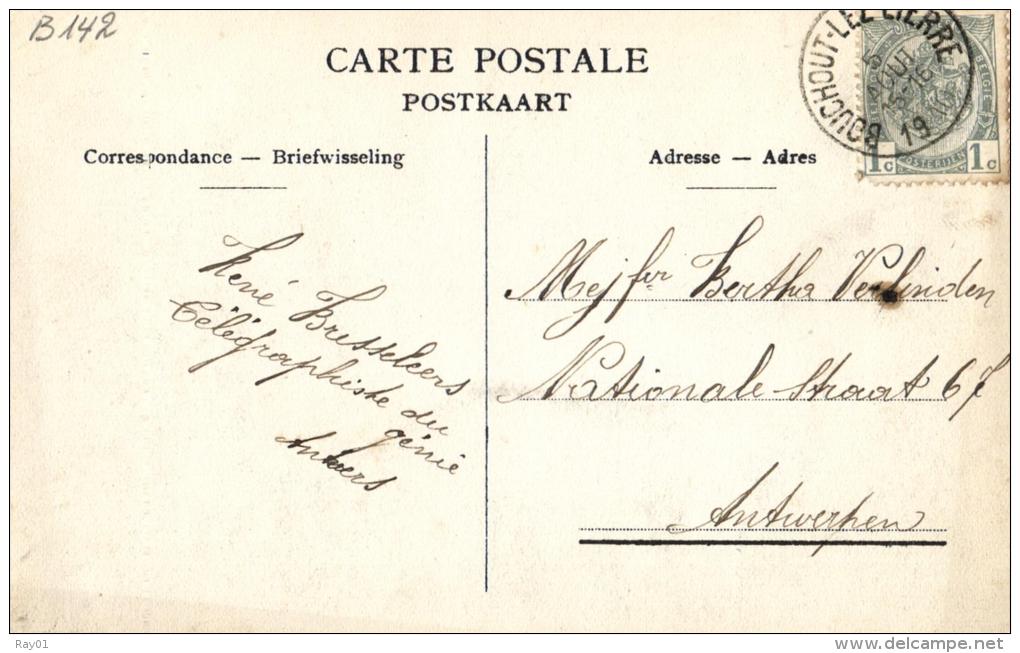 B142
CARTE POSTALE
POSTKAART
Correspondance — Briefwisseling
Adresse — Adres
BOUCHOUT-LEZ-LIERRE
5
AOUT
15-16
19
BELGIE
1c POSTERIJEN 1c
René Brusseleers
Télégraphiste du
génie
Anvers
Mejfer Bertha Verlinden
Nationale Straat 67
Antwerpen
Ray01
www.delcampe.net